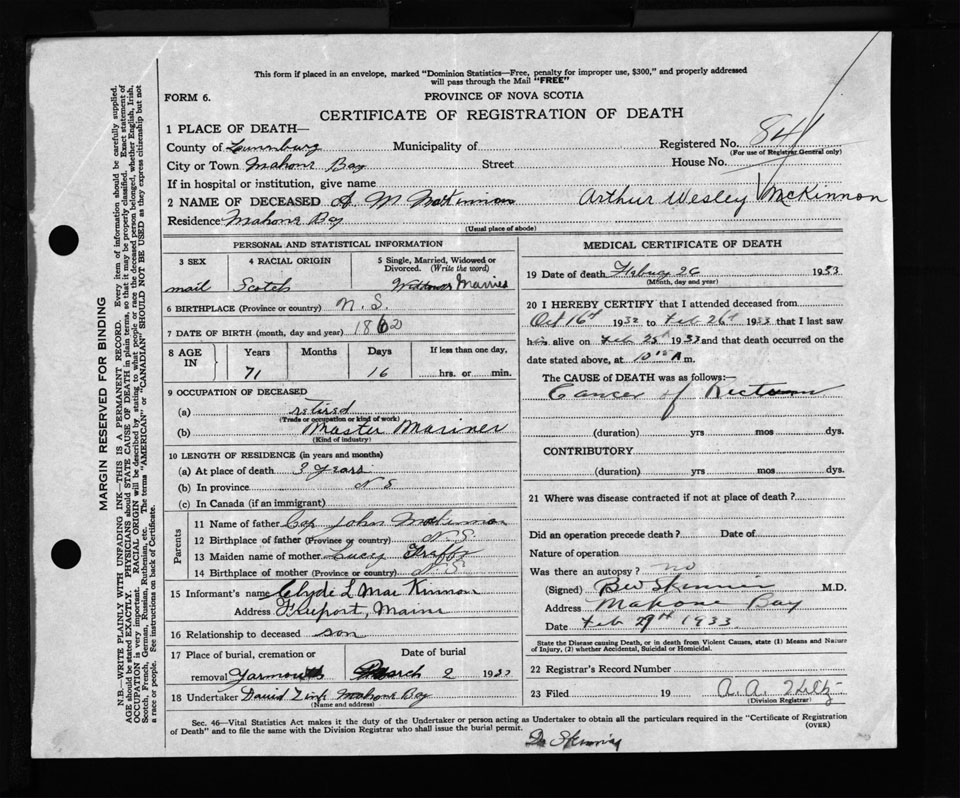 This form if placed in an envelope, marked "Dominion Statistics—Free, penalty for improper use, $300," and properly addressed
will pass through the Mail "FREE"
FORM 6.
PROVINCE OF NOVA SCOTIA
CERTIFICATE OF REGISTRATION OF DEATH
1 PLACE OF DEATH—
Registered No. 84
(For use of Registrar General only)
County of Lunenburg Municipality of
City or Town Mahone Bay Street House No.
If in hospital or institution, give name
2 NAME OF DECEASED A M McKinnon Arthur Wesley McKinnon
Residence Mahone Bay
(Usual place of abode)
PERSONAL AND STATISTICAL INFORMATION
3 SEX
4 RACIAL ORIGIN
5 Single, Married, Widowed or Divorced. (Write the word)
mail Scotch Widower Married
6 BIRTHPLACE (Province or country) N.S.
7 DATE OF BIRTH (month, day and year) 1862
8 AGE IN
Years Months Days If less than one day,
71 16 hrs. or min.
9 OCCUPATION OF DECEASED
(a) retired
(Trade or occupation or kind of work)
(b) Master Mariner
(Kind of industry)
10 LENGTH OF RESIDENCE (in years and months)
(a) At place of death 3 years
(b) In province N S
(c) In Canada (if an immigrant)
Parents
11 Name of father Cap John McKinnon
12 Birthplace of father (Province or country) N.S.
13 Maiden name of mother Lucy
14 Birthplace of mother (Province or country) N.S.
15 Informant's name Clyde L MacKinnon
Address Freeport, Maine
16 Relationship to deceased son
17 Place of burial, cremation or Date of burial
removal Yarmouth March 2 1933
18 Undertaker David Zink Mahone Bay
(Name and address)
MEDICAL CERTIFICATE OF DEATH
19 Date of death 26 1933
(Month, day and year)
20 I HEREBY CERTIFY that I attended deceased from
Oct 16th 1932 to Feb 26th 1933 that I last saw
him alive on Feb 25th 1933 and that death occurred on the
date stated above, at 10 A m.
The CAUSE OF DEATH was as follows:—
Cancer of Rectum
(duration) yrs mos dys.
CONTRIBUTORY
(duration) yrs mos dys.
21 Where was disease contracted if not at place of death ?
Did an operation precede death? Date of
Nature of operation
Was there an autopsy ? no
(Signed) Skinner M.D.
Address Mahone Bay
Date Feb 1933
State the Disease causing Death, or in death from Violent Causes, state (1) Means and Nature
of Injury, (2) whether Accidental, Suicidal or Homicidal.
22 Registrar's Record Number
23 Filed 19 A. A.
(Division Registrar)
Sec. 46—Vital Statistics Act makes it the duty of the Undertaker or person acting as Undertaker to obtain all the particulars required in the "Certificate of Registration
of Death" and to file the same with the Division Registrar who shall issue the burial permit.
(OVER)
Dr Skinner
MARGIN RESERVED FOR BINDING
N.B.—WRITE PLAINLY WITH UNFADING INK—THIS IS A PERMANENT RECORD. Every item of information should be carefully supplied.
AGE should be stated EXACTLY. PHYSICIANS should STATE CAUSE OF DEATH in plain terms, so that it may be properly classified. Exact statement of
OCCUPATION is very important. RACIAL ORIGIN will be described by stating to what people or race the deceased person belonged, whether English, Irish,
Scotch, French, German, Russian, Ruthenian, etc. The terms "AMERICAN" or "CANADIAN" SHOULD NOT BE USED as they express citizenship but not
a race or people. See instructions on back of Certificate.